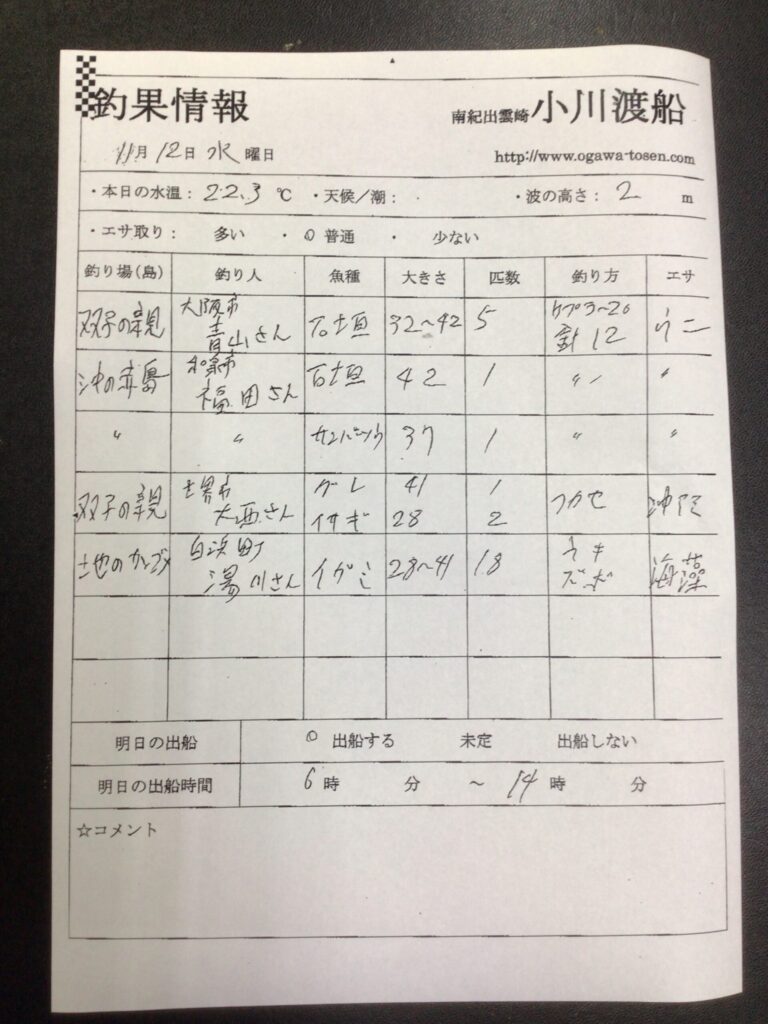 釣果情報
南紀出雲崎 小川渡船
11月 12日 水 曜日
http://www.ogawa-tosen.com
・本日の水温： 22.3 ℃ ・天候／潮： ・波の高さ： 2 m
・エサ取り： 多い ・ 普通 ・ 少ない
釣り場（島） 釣り人 魚種 大きさ 匹数 釣り方 エサ
双子の親 大阪市 青山さん 石垣 32〜42 5 針 12 ウニ
沖の赤島 福田さん 石垣 42 1 〃 〃
〃 〃 サンバソウ 37 1 〃 〃
双子の親 堺市 大西さん グレ 41 1 フカセ 沖アミ
イサギ 28 2
白浜町 湯川さん イガミ 28〜41 18 ウキ ズボ 海藻
明日の出船 出船する 未定 出船しない
明日の出船時間 6時 分 〜 14時 分
☆コメント